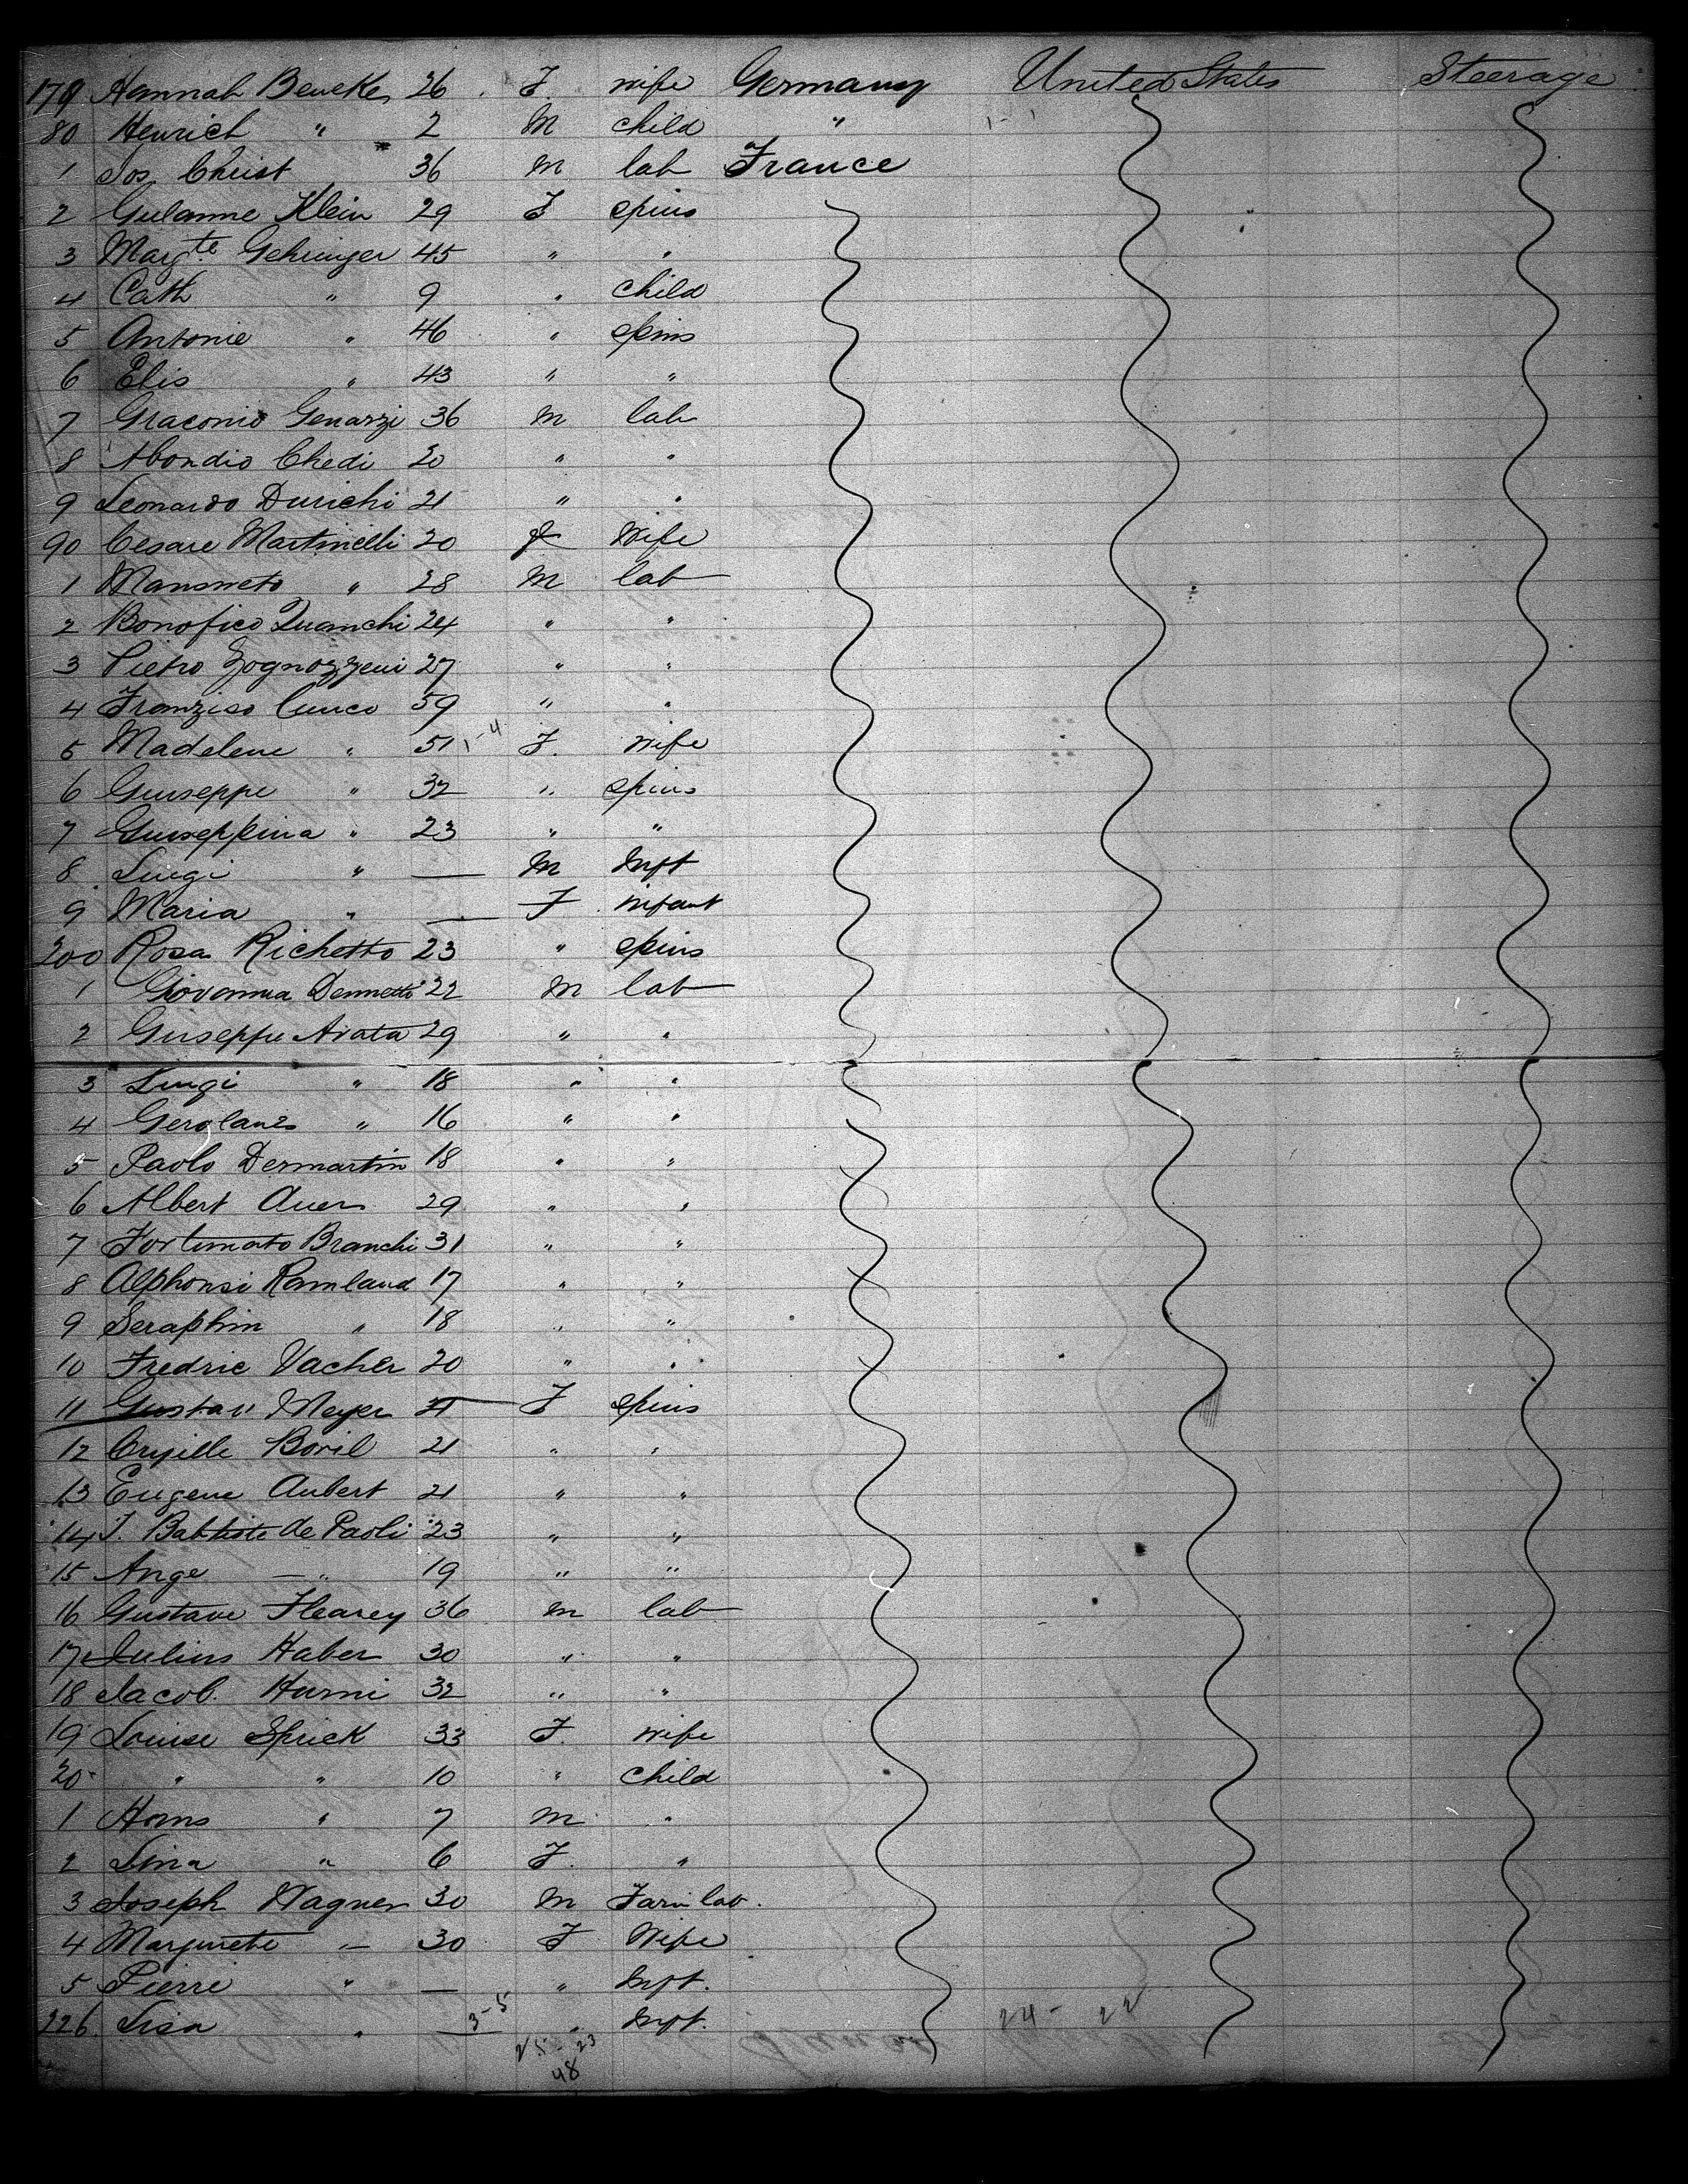 179 Hannah Beucke 26 F. wife Germany United States Steerage
80 Henrich " 2 M child "
1 Jos Christ 36 M lab France
2 Gulanne Klein 29 F spins
3 Margte Gehringer 45 " "
4 Cath " 9 " child
5 Antonie " 46 " spins
6 Elis " 43 " "
7 Graconio Genazzi 36 M lab
8 Abondio Chedi 20 " "
9 Leonardo Durichi 21 " "
90 Cesare Martinelli 20 F Wife
1 Mansueto " 28 M lab
2 Bonofico Quanchi 24 " "
3 Pietro Zognozzeni 27 " "
4 Franziso Cunco 59 " "
5 Madelene " 51 1-4 F. wife
6 Guiseppe " 32 " spins
7 Guiseppina " 23 " "
8 Luigi " — M Inft
9 Maria " — F infant
200 Rosa Richetto 23 " spins
1 Giovanna Dennetti 22 M lab
2 Guseppe Arata 29 " "
3 Luigi " 18 " "
4 Gerolanes " 16 " "
5 Paolo Dermartin 18 " "
6 Albert Auer 29 " "
7 Fortunato Branchi 31 " "
8 Alphonsi Ramland 17 " "
9 Seraphim " 18 " "
10 Fredric Vacher 20 " "
11 Gustav Meyer 21 F spins
12 Boril 21 " "
13 Eugene Aubert 21 " "
14 J. Babtiste de Paoli 23 " "
15 Ange —" 19 " "
16 Gustave Flearey 36 M lab
17 Julius Haber 30 " "
18 Jacob. Hurni 32 " "
19 Louise Sprick 33 F. wife
20 " " 10 " child
1 Hans " 7 M "
2 Lina " 6 F. "
3 Joseph Wagner 30 M Farm lab.
4 Margurete " 30 F Wife
5 Pierre " — " Inft.
226 Lisa " — " Inft.
3-5
24- 22
25- 23
48